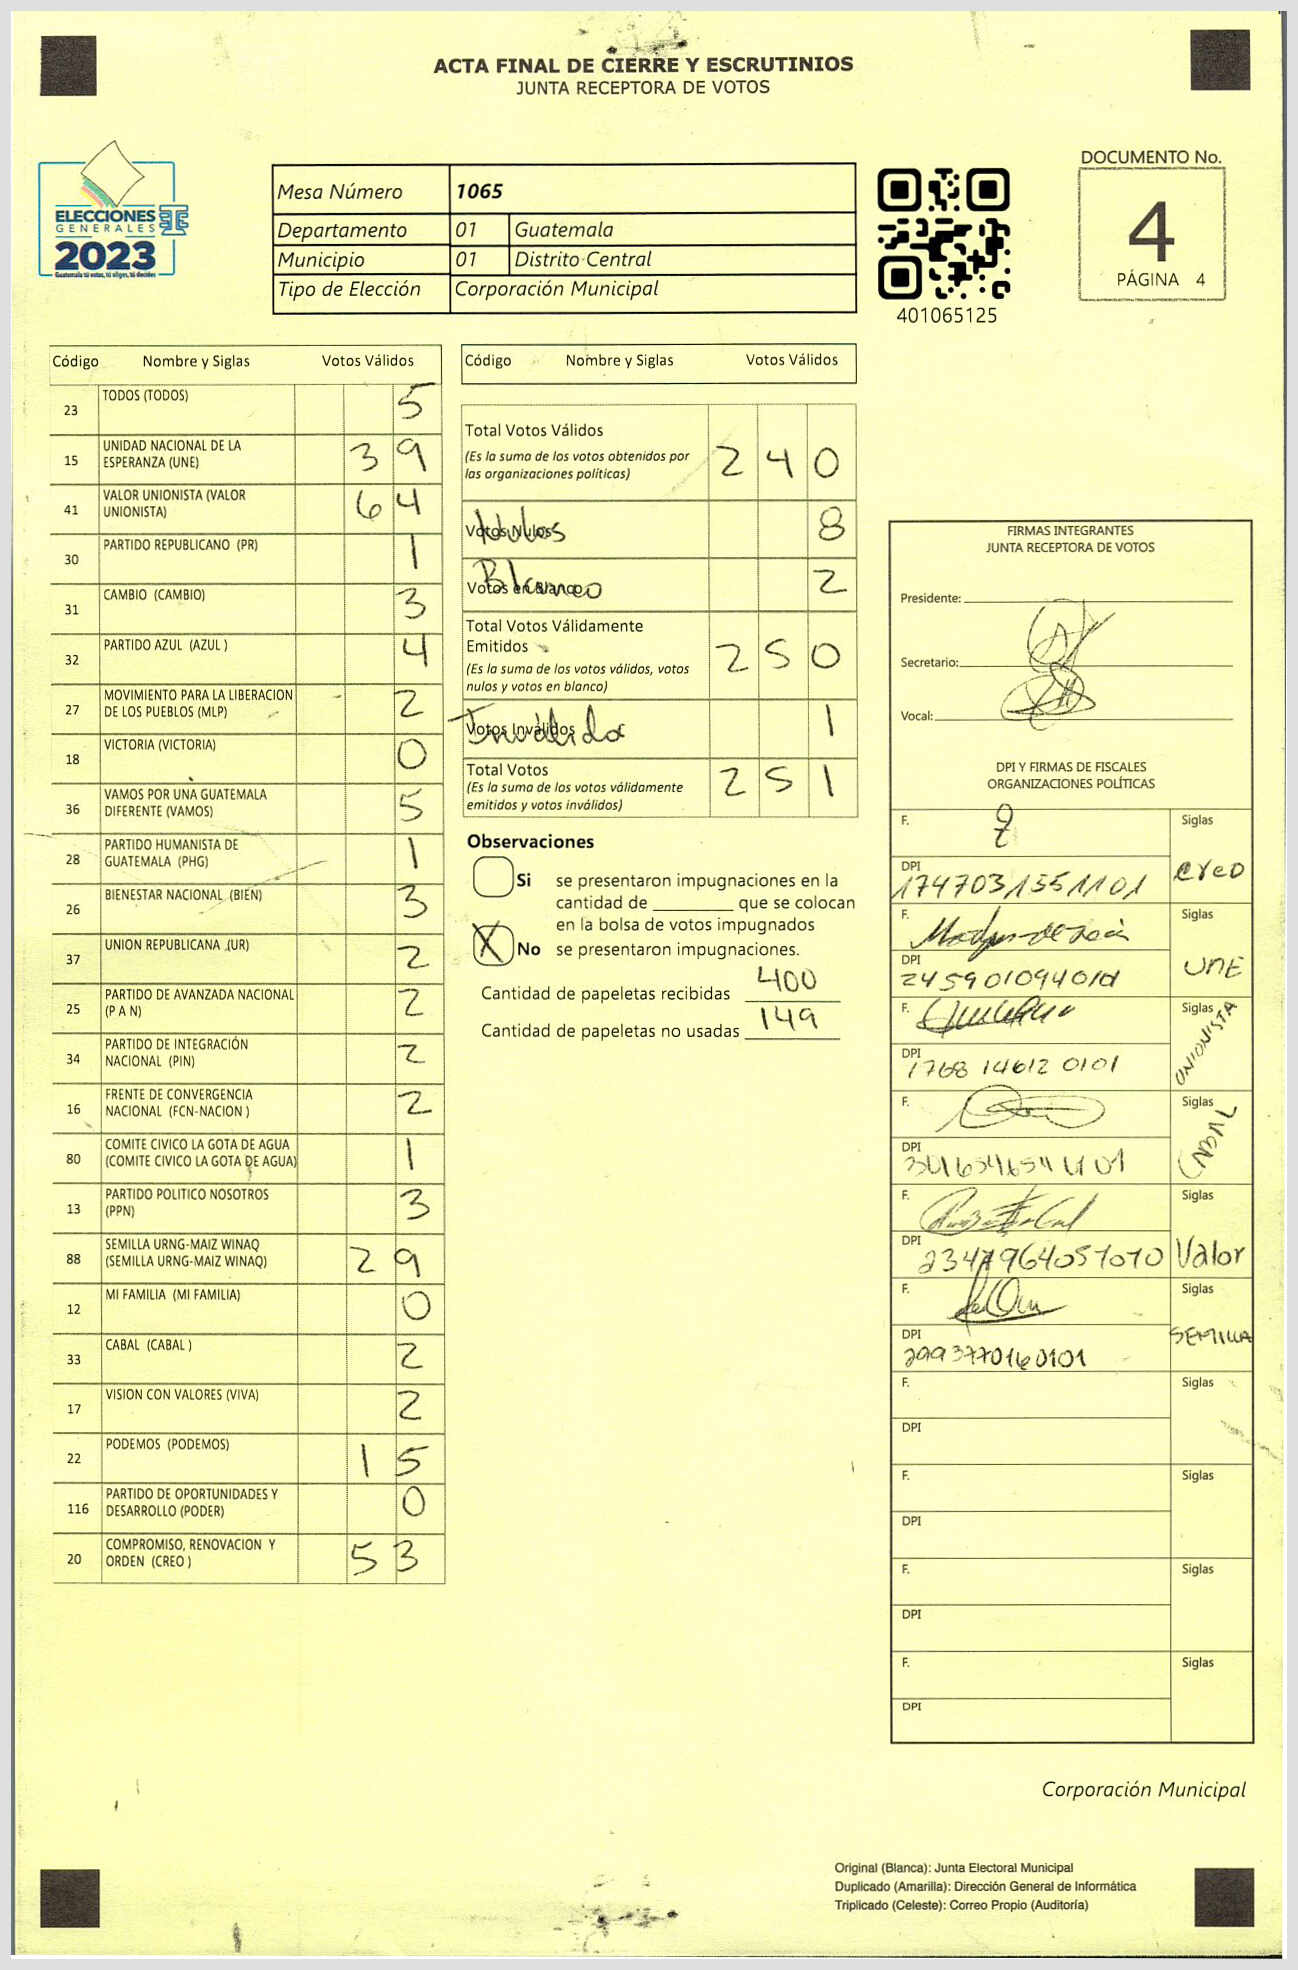 ACTA FINAL DE CIERRE Y ESCRUTINIOS
JUNTA RECEPTORA DE VOTOS
ELECCIONES
GENERALES
2023
Guatemala tú votas, tú eliges, tú decides
Mesa Número 1065
Departamento 01 Guatemala
Municipio 01 Distrito Central
Tipo de Elección Corporación Municipal
401065125
DOCUMENTO No.
4
PÁGINA 4
Código Nombre y Siglas Votos Válidos
23 TODOS (TODOS) 5
15 UNIDAD NACIONAL DE LA ESPERANZA (UNE) 39
41 VALOR UNIONISTA (VALOR UNIONISTA) 64
30 PARTIDO REPUBLICANO (PR) 1
31 CAMBIO (CAMBIO) 3
32 PARTIDO AZUL (AZUL ) 4
27 MOVIMIENTO PARA LA LIBERACION DE LOS PUEBLOS (MLP) 2
18 VICTORIA (VICTORIA) 0
36 VAMOS POR UNA GUATEMALA DIFERENTE (VAMOS) 5
28 PARTIDO HUMANISTA DE GUATEMALA (PHG) 1
26 BIENESTAR NACIONAL (BIEN) 3
37 UNION REPUBLICANA (UR) 2
25 PARTIDO DE AVANZADA NACIONAL (P A N) 2
34 PARTIDO DE INTEGRACIÓN NACIONAL (PIN) 2
16 FRENTE DE CONVERGENCIA NACIONAL (FCN-NACION ) 2
80 COMITE CIVICO LA GOTA DE AGUA (COMITE CIVICO LA GOTA DE AGUA) 1
13 PARTIDO POLITICO NOSOTROS (PPN) 3
88 SEMILLA URNG-MAIZ WINAQ (SEMILLA URNG-MAIZ WINAQ) 29
12 MI FAMILIA (MI FAMILIA) 0
33 CABAL (CABAL ) 2
17 VISION CON VALORES (VIVA) 2
22 PODEMOS (PODEMOS) 15
116 PARTIDO DE OPORTUNIDADES Y DESARROLLO (PODER) 0
20 COMPROMISO, RENOVACION Y ORDEN (CREO ) 53
Código Nombre y Siglas Votos Válidos
Total Votos Válidos 240
(Es la suma de los votos obtenidos por
las organizaciones políticas)
Votos Nulos Nulos 8
Votos en Blanco Blanco 2
Total Votos Válidamente
Emitidos 250
(Es la suma de los votos válidos, votos
nulos y votos en blanco)
Votos Inválidos Inválido 1
Total Votos 251
(Es la suma de los votos válidamente
emitidos y votos inválidos)
Observaciones
Si se presentaron impugnaciones en la
cantidad de ________ que se colocan
en la bolsa de votos impugnados
X No se presentaron impugnaciones.
Cantidad de papeletas recibidas 400
Cantidad de papeletas no usadas 149
FIRMAS INTEGRANTES
JUNTA RECEPTORA DE VOTOS
Presidente:
Secretario:
Vocal:
DPI Y FIRMAS DE FISCALES
ORGANIZACIONES POLÍTICAS
F. Siglas
DPI 1747031351101 CREO
F. Siglas
DPI 2459010940101 UNE
F. Siglas
DPI 1768 14612 0101 UNIONISTA
F. Siglas
DPI
F. Siglas
DPI 2347964057070 Valor
F. Siglas
DPI 2993770160101 SEMILLA
F. Siglas
DPI
F. Siglas
DPI
F. Siglas
DPI
F. Siglas
DPI
Corporación Municipal
Original (Blanca): Junta Electoral Municipal
Duplicado (Amarilla): Dirección General de Informática
Triplicado (Celeste): Correo Propio (Auditoría)